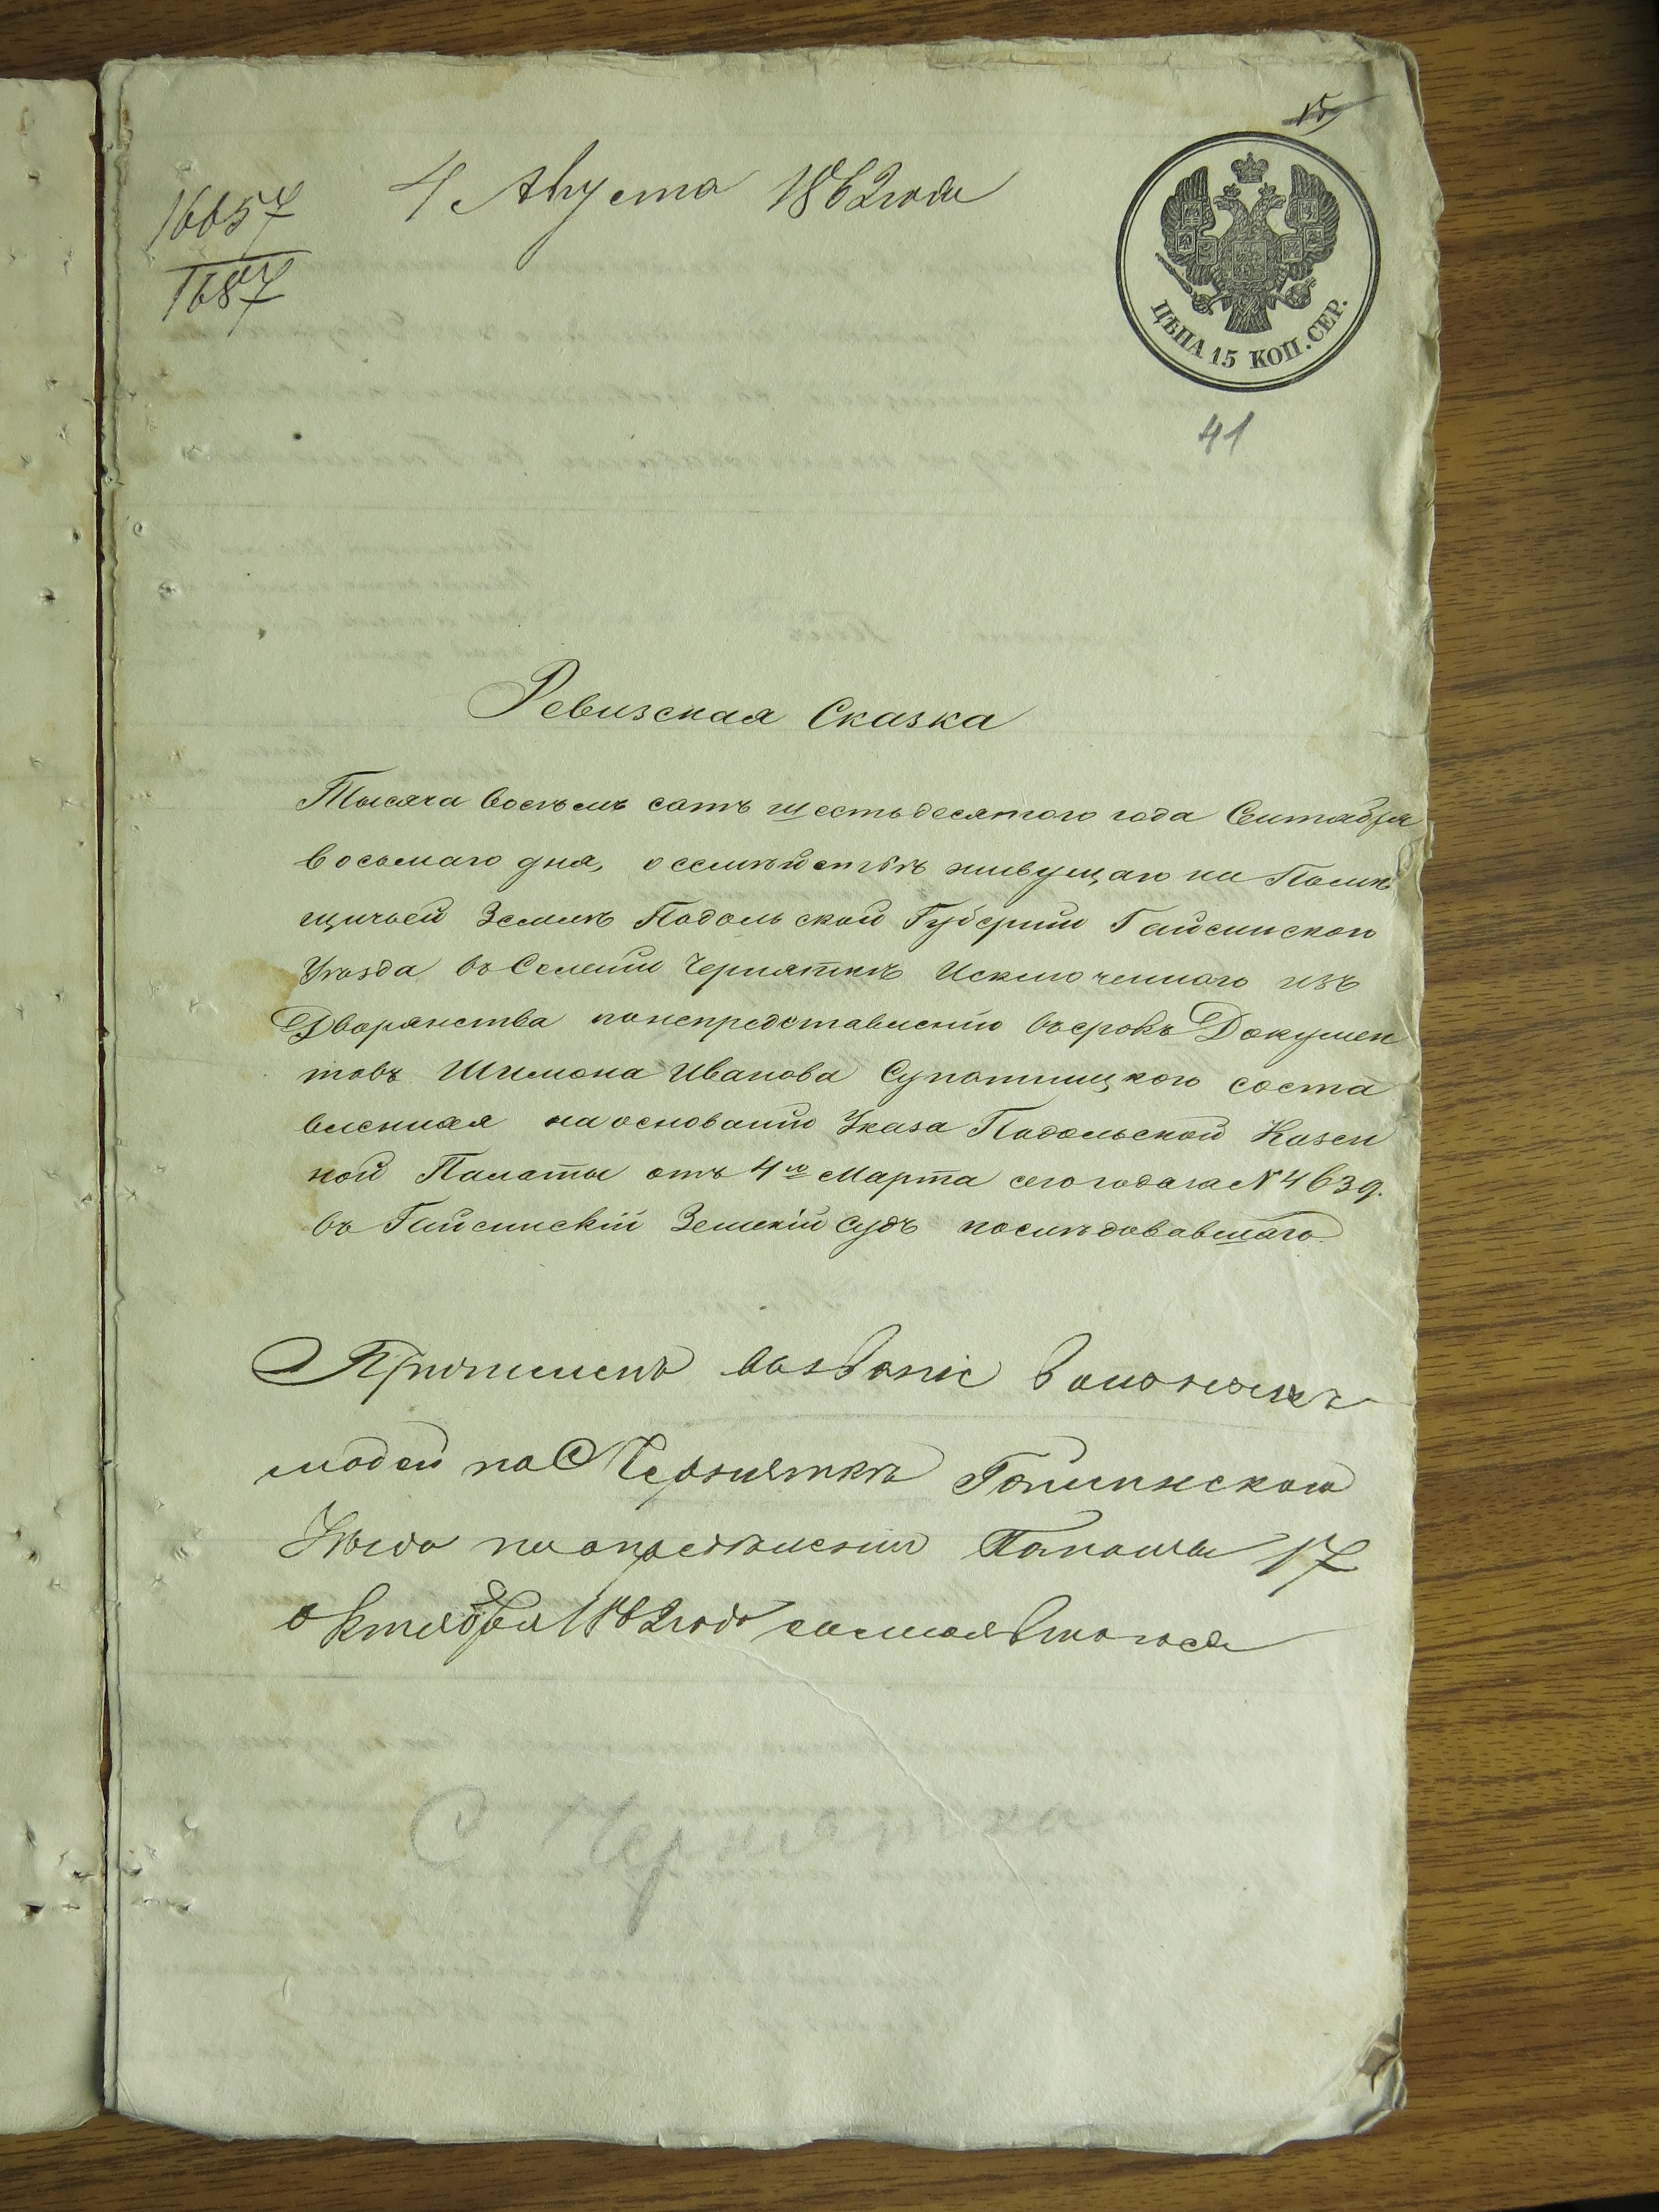 15
16657
1687
4 Августа 1862 года
ЦѢНА 15 КОП. СЕР.
41
Ревизская Сказка
Тысяча восемъ сотъ шестьдесятого года Сентября
восьмаго дня, о семѣйствѣ живущаго на Помѣ
щичьей Землѣ Подольской Губерніи Гайсинского
Уѣзда въ Селеніи Черняткѣ Исключенного изъ
Дворянства понепредставленію въ срокъ Докумен
товъ Шимона Иванова Супотницкого соста
вленная на основаніи Указа Подольской Казен
ной Палаты отъ 4го Марта сего года за N 4639.
въ Гайсинскій Земскій судъ послѣдовавшаго.
Причисленъ въ званіе вольныхъ
людей по С Черняткѣ Гайсинского
Уѣзда по опредѣленію Палаты 17
октября 1862 года состоявшагося
С Чернятка